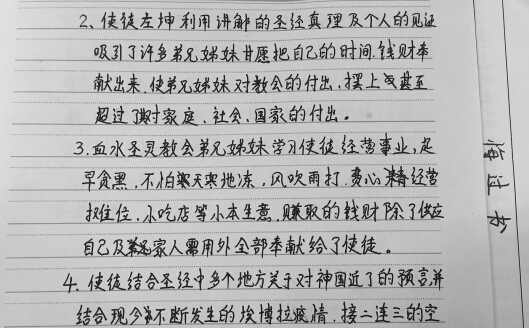 2、使徒左坤利用讲解的圣经真理及个人的见证
吸引了许多弟兄姊妹甘愿把自己的时间、钱财奉
献出来、使弟兄姊妹对教会的付出、摆上甚至
超过了对家庭、社会、国家的付出。
3、血水圣灵教会弟兄姊妹学习使徒经营事业,起
早贪黑,不怕寒天地冻,风吹雨打、费心经营
旅住位、小吃店等小本生意,赚取的钱财除了供应
自己及家人需用外全部奉献给了使徒。
4、使徒结合圣经中多个地方关于对神国近了的预言,并
结合现今不断发生的埃博拉疫情、接二连三的空
悔过书